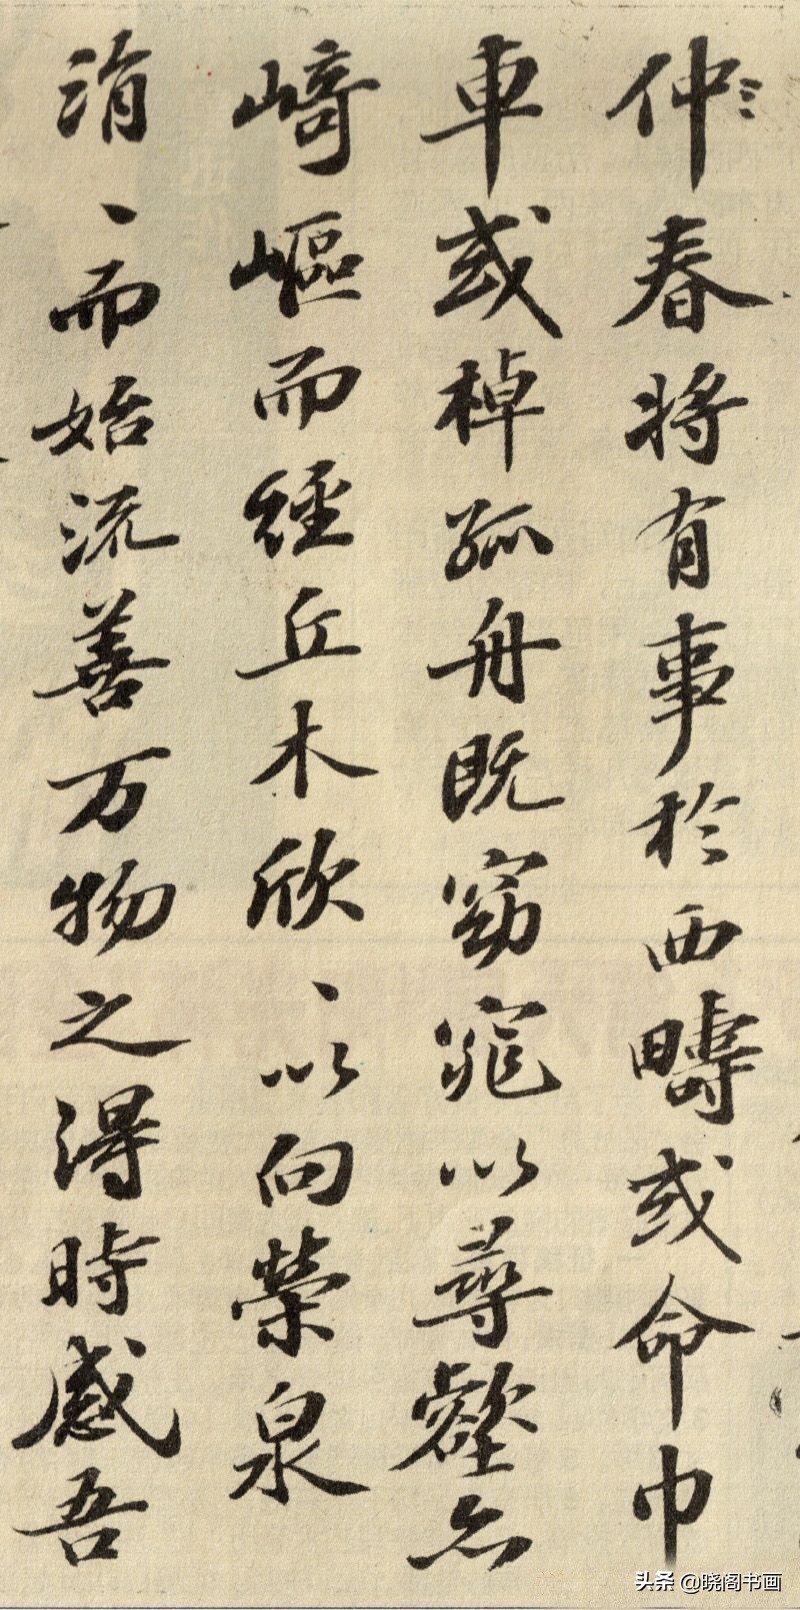 仲春將有事於西疇或命巾
車或棹孤舟既窈窕以尋壑亦
崎嶇而經丘木欣、以向榮泉
涓、而始流善万物之得時感吾
头条 @晓阁书画